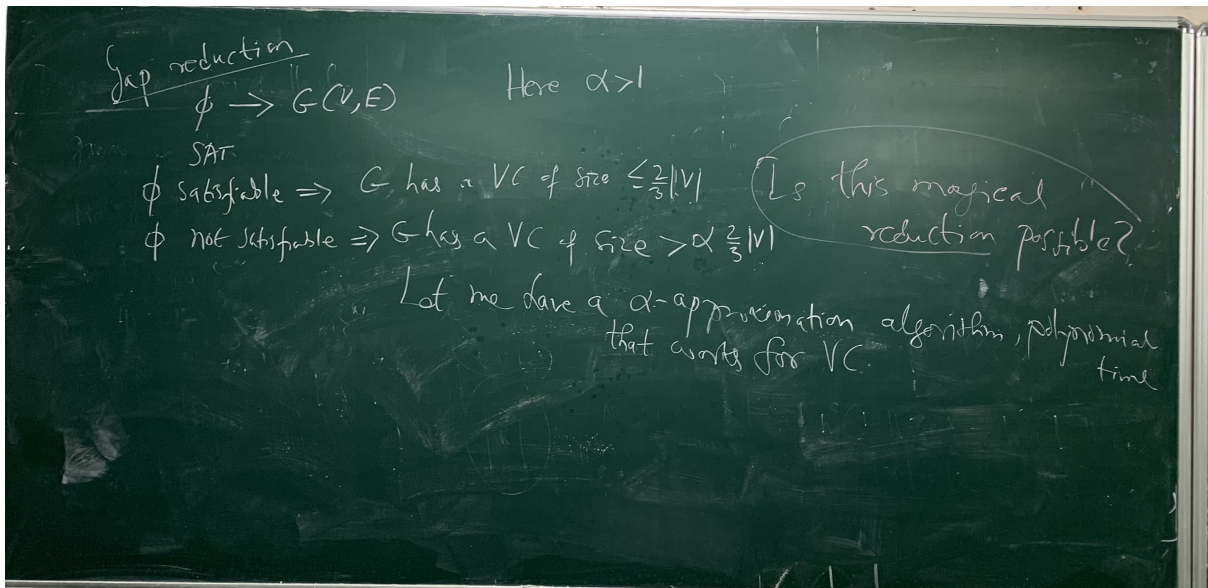 Gap reduction
ϕ → G(V,E)
Here α>1
SAT
ϕ satisfiable ⇒ G has a VC of size ≤ 2/3|V|
ϕ not satisfiable ⇒ G has a VC of size > α 2/3 |V|
Is this magical
reduction possible?
Let me have a α-approximation algorithm, polynomial
time
that works for VC.